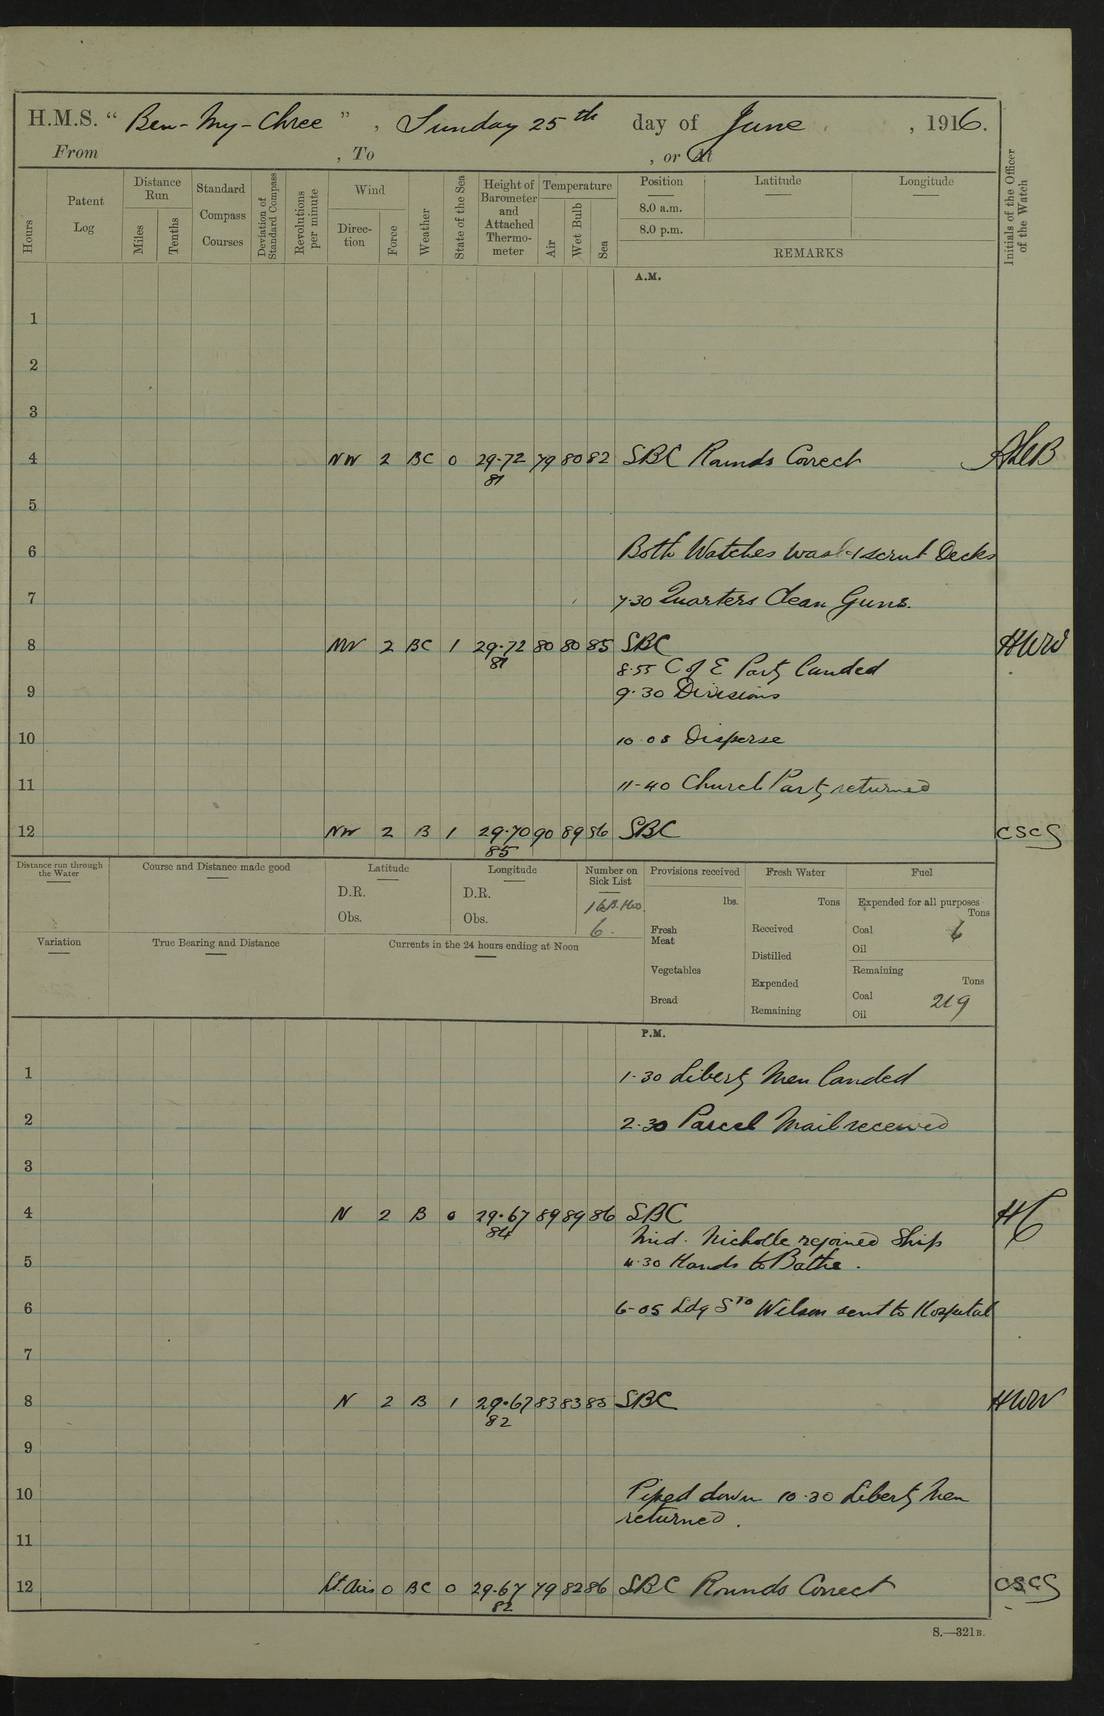 H.M.S. “ Ben-My-Chree ” , Sunday 25th day of June , 1916.
From , To , or At
Hours
Patent Log
Distance Run
Miles
Tenths
Standard Compass Courses
Deviation of Standard Compass
Revolutions per minute
Wind
Direc-tion
Force
Weather
State of the Sea
Height of Barometer and Attached Thermo-meter
Temperature
Air
Wet Bulb
Sea
Position Latitude Longitude
8.0 a.m.
8.0 p.m.
REMARKS
Initials of the Officer of the Watch
A.M.
1
2
3
4 NW 2 BC 0 29.72 79 80 82 SBC Rounds Correct
81
5
6 Both Watches wash & scrub Decks
7 7.30 Quarters Clean Guns.
8 NW 2 BC 1 29.72 80 80 85 SBC HWW
81 8.55 C of E Party landed
9 9.30 Divisions
10 10.05 Disperse
11 11-40 Church Party returned
12 NW 2 B 1 29.70 90 89 86 SBC CSCS
85
Distance run through the Water
Course and Distance made good
Latitude
D.R.
Obs.
Longitude
D.R.
Obs.
Number on Sick List
6.
Provisions received
lbs.
Fresh Meat
Vegetables
Bread
Fresh Water
Tons
Received
Distilled
Expended
Remaining
Fuel
Expended for all purposes
Tons
Coal 6
Oil
Remaining
Tons
Coal 219
Oil
Variation
True Bearing and Distance
Currents in the 24 hours ending at Noon
P.M.
1 1.30 Liberty Men landed
2 2.30 Parcel Mail received
3
4 N 2 B 0 29.67 89 89 86 SBC HC
84 Mid. Nicholle rejoined Ship
5 4.30 Hands to Bathe.
6 6-05 Ldg Sto Wilson sent to Hospital
7
8 N 2 B 1 29.67 83 83 85 SBC HWW
82
9
10 Piped down 10.30 Liberty Men
returned.
11
12 Lt. Airs 0 BC 0 29.67 79 82 86 SBC Rounds Correct CSCS
82
S.—321B.